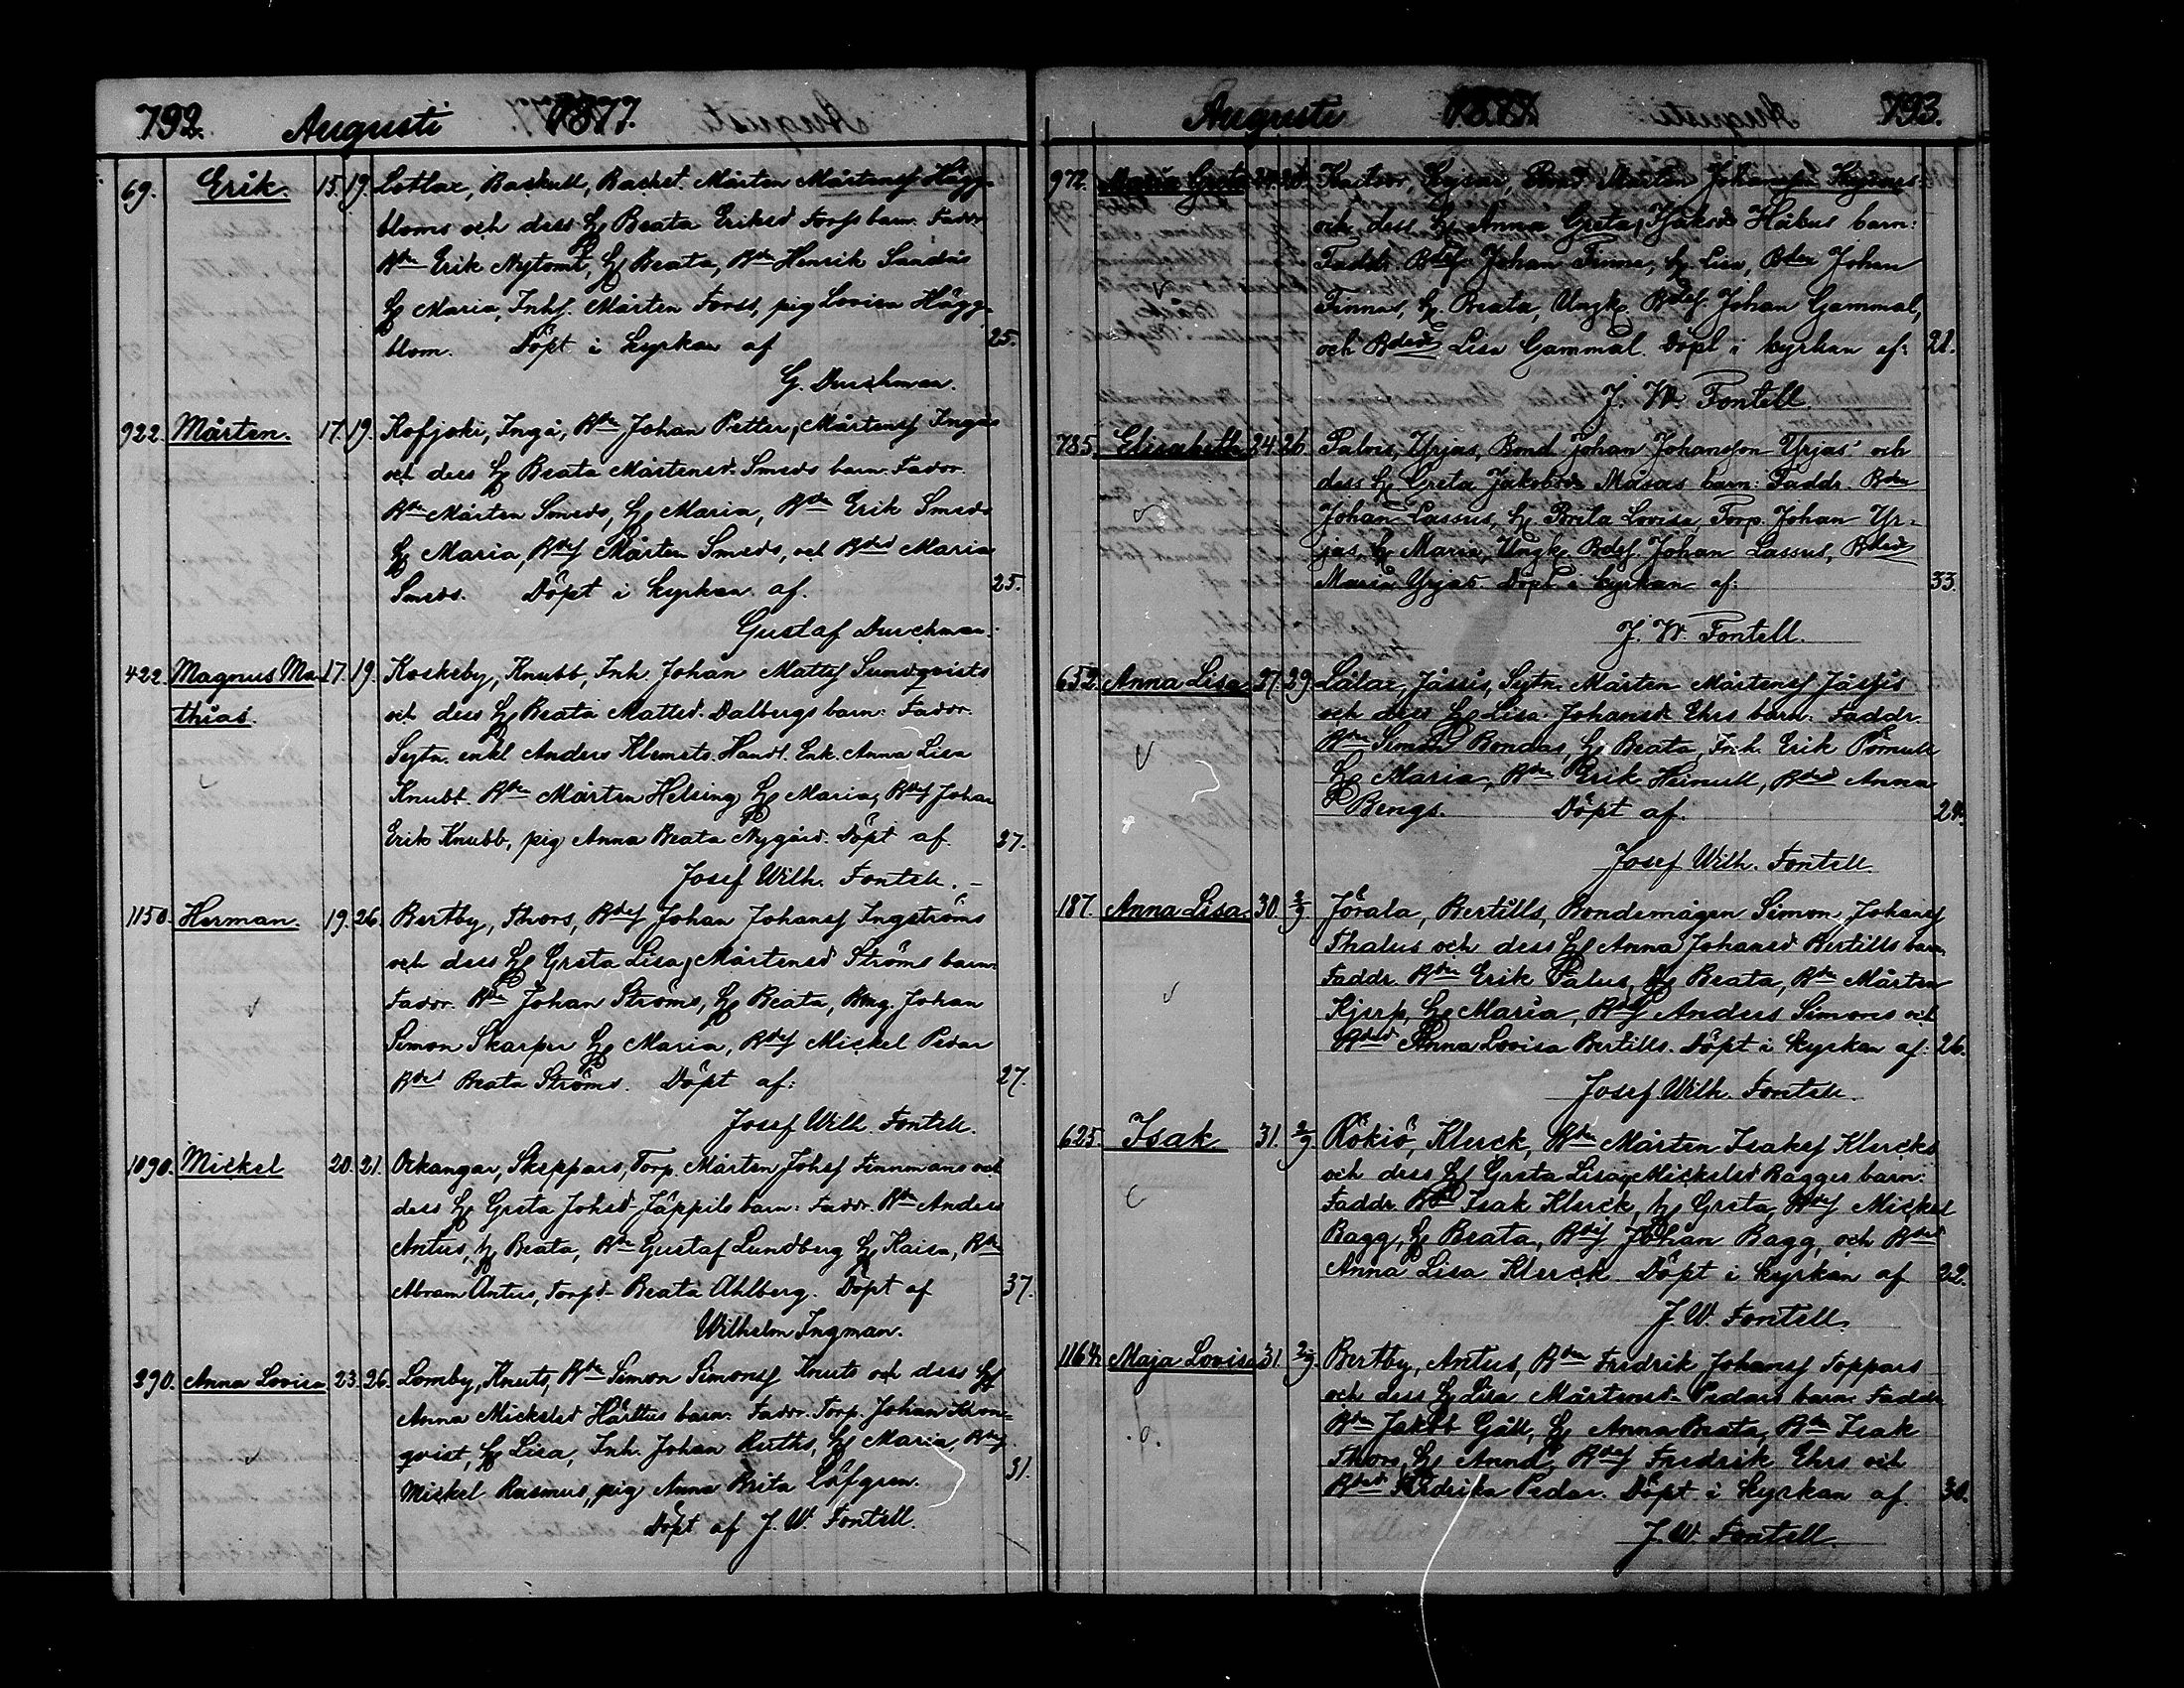 792. Augusti 1877.
69. Erik. 15. 19. Lotlax, Backull, Backst. Mårten Mårtensf Hägg-
bloms och dess H Beata Eriksd Forss barn. Faddr
Bdn Erik Nytomt, H Beata, Bdn Henrik Sandås
H Maria, Inhs. Mårten Forss, pig Lovisa Hägg-
blom. Döpt i kyrkan af 25.
G. Durchman.
922. Mårten. 17. 19. Rofjoki, Ingå, Bdn Johan Petter Mårtensf Ingås
och dess H Beata Mårtensd. Smeds barn. Faddr.
Bdn Mårten Smeds, H Maria, Bdn Erik Smeds
H Maria, Bdsf Mårten Smeds, och Bdsd Maria
Smeds. Döpt i kyrkan af. 25.
Gustaf Durchman.
422. Magnus Ma- 17. 19. Koskeby, Knubb, Inh. Johan Mattsf Sundqvists
thias. och dess H Beata Mattsd. Dalbergs barn: Faddr.
Sytn. enkl Anders Klemets. Handl. Enk. Anna Lisa
Knubb. Bdn Mårten Helsing H Maria, Bdsf Johan
Erik Knubb, pig Anna Beata Nygård. Döpt af. 27.
Josef Wilh. Fontell.
1150. Herman. 19. 26. Bertby, Thors, Bdsf Johan Johansf Ingströms
och dess H Greta Lisa, Mårtensd Ströms barn:
Faddr. Bdn Johan Ströms, H Beata, Johan
Simon Skarpar H Maria, Bdsf Mickel Pedar
Bdsd Beata Ströms. Döpt af: 27.
Josef Wilh. Fontell.
1090. Mickel 20. 21. Orkangar, Skeppars, Torp. Mårten Johsf Finnmans och
dess H Greta Johsd Jäppils barn: Faddr. Bdn Anders
Antus, H Beata, Bdn Gustaf Lundberg H Kaisa, Bdn
Abram Antus, Torpd. Beata Ahlberg. Döpt af 37.
Wilhelm Ingman.
290. Anna Lovisa 23. 26. Lomby, Knuts, Bdn Simon Simonsf Knuts och dess H
Anna Mickelsd Härttus barn: Faddr. Torp. Johan Kron-
qvist, H Lisa, Inh. Johan Ruths, H Maria, Bdsf
Mickel Rasmus, pig Anna Brita Löfgren. 31.
Döpt af J. W. Fontell.
Augusti 1877. 793.
972. Maria Greta 24. Kaitsor, Bond. Mårten Johansson
och dess H Anna Greta, Isaksd. Håbus barn:
Faddr. Bdsf Johan Finne, H Lisa, Bdn Johan
Finnas, H. Beata, Ungk. Bdsf. Johan Gammal,
och Bdsd Lisa Gammal. Döpt i kyrkan af: 21.
J. W. Fontell.
785. Elisabeth 24. 26 Palvis, Yrjas, Bond. Johan Johansson Yrjas och
dess H Greta Jakobsd. Måsas barn: Faddr. Bdn
Johan Lassus, H. Brita Lovisa, Torp. Johan Yr-
jas, H Maria, Ungk. Bdsf. Johan Lassus, Bdsd
Maria Yrjas. Döpt i kyrkan af: 33.
J. W. Fontell.
652. Anna Lisa 27. 29. Lålax, Jässis, Sytn. Mårten Mårtensf Jässis
och dess H Lisa Johansd. Ehrs barn: Faddr.
Bdn Simon Bondas, H Beata, Inh. Erik Pömull
H Maria, Bdn Erik Heinull, Bdsd Anna
Bengs. Döpt af. 24.
Josef Wilh. Fontell.
187. Anna Lisa. 30. 2/9 Jörala, Bertills, Bondemågen Simon Johansf
Thalus och dess H Anna Johansd Bertills barn.
Faddr. Bdn Erik Palus, H Beata, Bdn Mårten
Kjerp, H Maria, Bdsf Anders Simons och
Bdsd Anna Lovisa Bertills. Döpt i kyrkan af: 26.
Josef Wilh. Fontell.
625. Isak 31. 2/9 Rökiö, Klerck, Bdn Mårten Isaksf Klercks
och dess H Greta Lisa Mickelsd Baggs barn:
Faddr. Bdn Isak Klerck, H Greta, Bdsf Mickel
Bagg, H Beata, Bdsf Johan Bagg, och Bdsd
Anna Lisa Klerck. Döpt i kyrkan af 22.
J. W. Fontell.
1164. Maja Lovisa 31. 2/9 Bertby, Antus, Bdn Fredrik Johansf Toppars
och dess H Lisa Mårtensd. Pedars barn. Faddr
Bdn Jakob Gåll, H Anna Beata, Bdn Isak
Thors, H Anna, Bdsf Fredrik Ehrs och
Bdsd Fredrika Pedar. Döpt i kyrkan af 30.
J. W. Fontell.